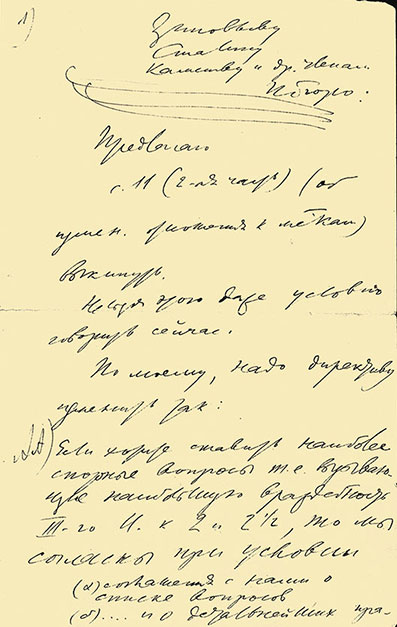 1)
Зиновьеву
Сталину
Каменеву и др. членам
П. бюро:
Предлагаю
с. 11 (2-ая часть) (об
измен. отношения к м-кам)
выкинуть.
Нельзя этого даже условно
говорить сейчас.
По моему, надо директиву
изменить так:
„АА) Если хотите ставить наиболее
спорные вопросы т.е. вызываю-
щие наибольшую враждебность
III-го И. к 2 и 2½, то мы
согласны при условии
(α) соглашения с нами о
списке вопросов
(б) .... и о детальнейших пра-